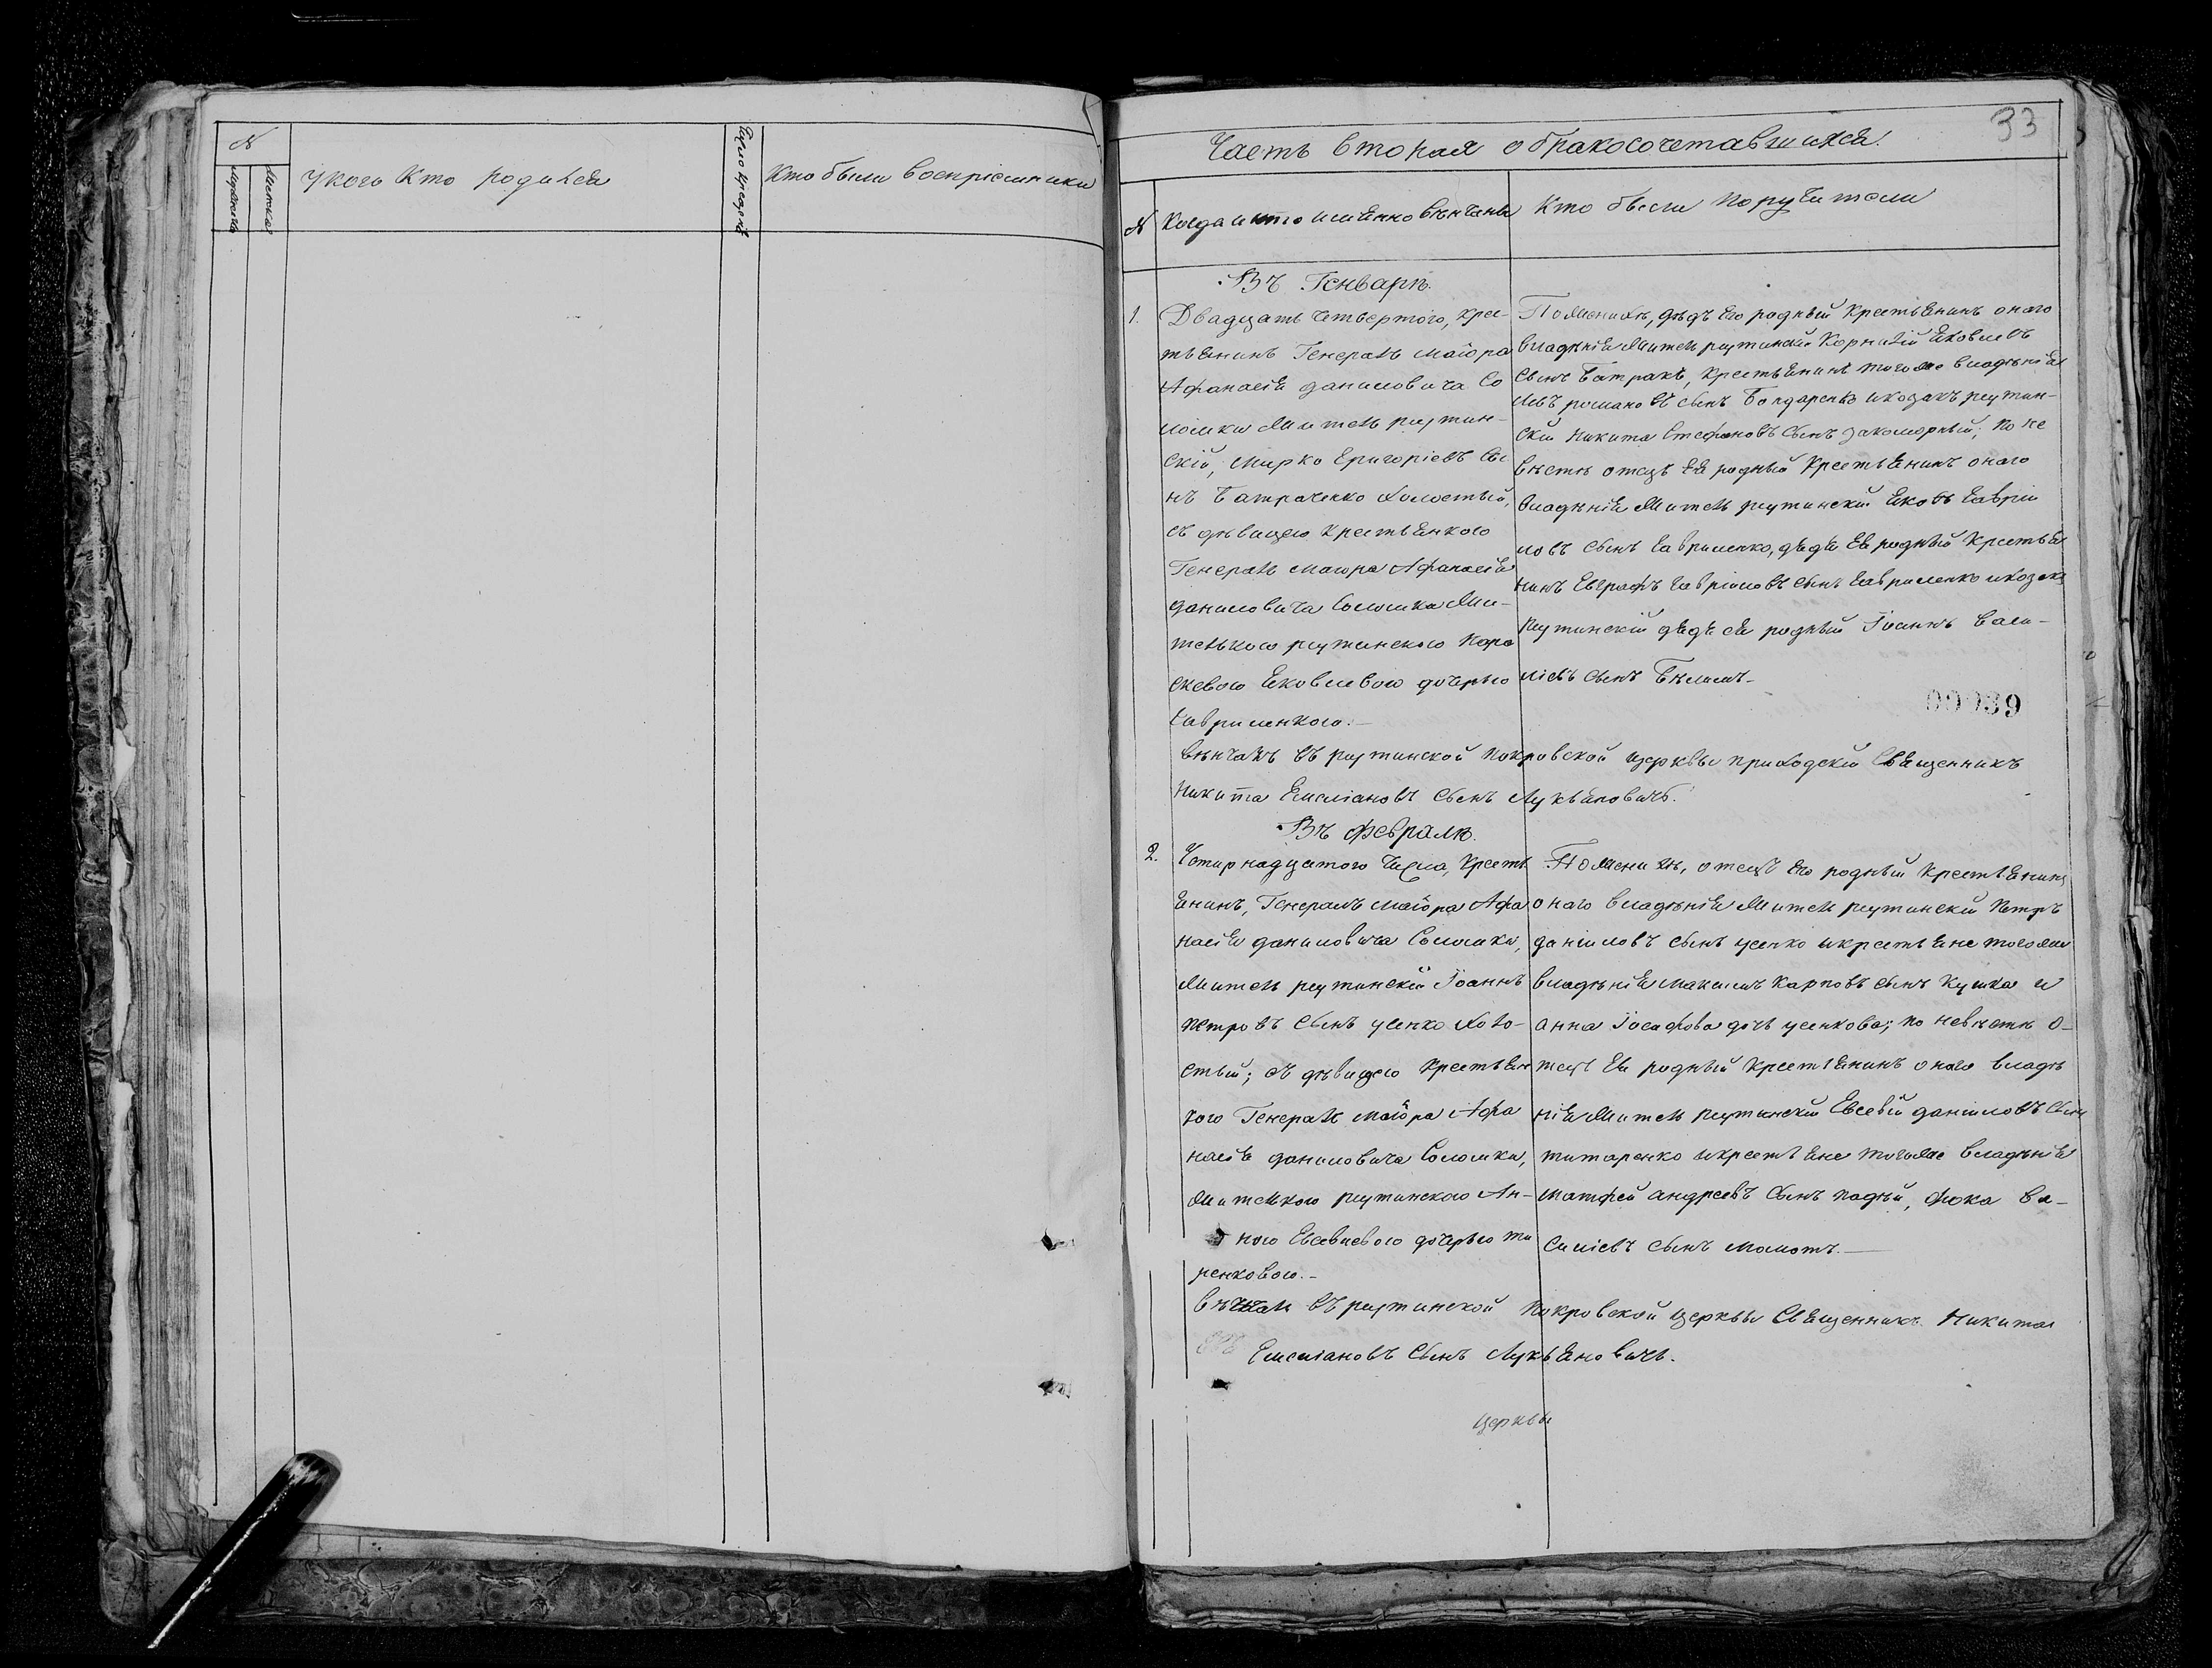 №
Мужеска
Женска
У кого кто родился
Число крещенія
Кто были воспріемники
33
Часть вторая о бракосочетавшихся.
№
Когда и кто именно вѣнчаны
Кто были поручители
Въ Генварѣ.
1.
Двадцать четвертого, крес-
тьянинъ Генералъ маіора
Афанасія даниловича Со
ломки житель реутин-
скій, Мирко Григоріевъ сы
нъ Батраченко холостый,
съ дѣвицею крестьянкою
Генералъ маіора Афанасія
даниловича Соломки жи-
телькою реутинскою Пара
скевою Яковлевою дочерью
Гавриленкою.-
По женихѣ, дядъ его родный крестьянинъ оного
владѣнія житель реутинскій Корнилій Яковлевъ
сынъ Батракъ, крестьянинъ того же владѣнія
Левъ романовъ сынъ Бондаренко и козакъ реутин-
скій Никита Стефановъ сынъ закоморный; по не
вѣстѣ отецъ ея родный крестьянинъ оного
владѣнія житель реутинскій Яковъ Гаврии
ловъ сынъ Гавриленко, дядя ея родный крестья
нинъ Евграфъ Гавріиловъ сынъ Гавриленко и козакъ
реутинскій дядя ея родный Іоаннъ Васи-
ліевъ сынъ Бѣликъ-
00039
вѣнчалъ въ реутинской покровской церквы приходскій Священникъ
Никита Емеліановъ сынъ Лукьяновичъ.
Въ февралѣ.
2.
Четирнадцатого числа, крестъ
янинъ, Генералъ маіора Афа
насія даниловича Соломки,
житель реутинскій Іоаннъ
Петровъ сынъ усенко холо-
стый; съ дѣвицею крестьян
кою Генералъ маіора Афа
насія даниловича Соломки,
жителькою реутинскою Ан-
ною Евсевіевою дочерью ти
ренковою.-
По женихѣ, отецъ его родный крестьянинъ
оного владѣнія житель реутинскій Петръ
даніиловъ сынъ усенко и крестьяне того же
владѣнія Максимъ Карповъ сынъ Кушка и
анна Іосифова дочь усенкова; по невѣстѣ о-
тецъ ея родный крестьянинъ оного владѣ
нія житель реутинскій Евсевій даніиловъ сынъ
титаренко и крестьяне того же владѣнія
Матфей андреевъ сынъ падѣй, фока Ва-
силіевъ сынъ мамотъ.-
вѣнчалъ въ реутинской покровской церквы Священникъ Никита
Емеліановъ сынъ Лукьяновичъ.
церквы